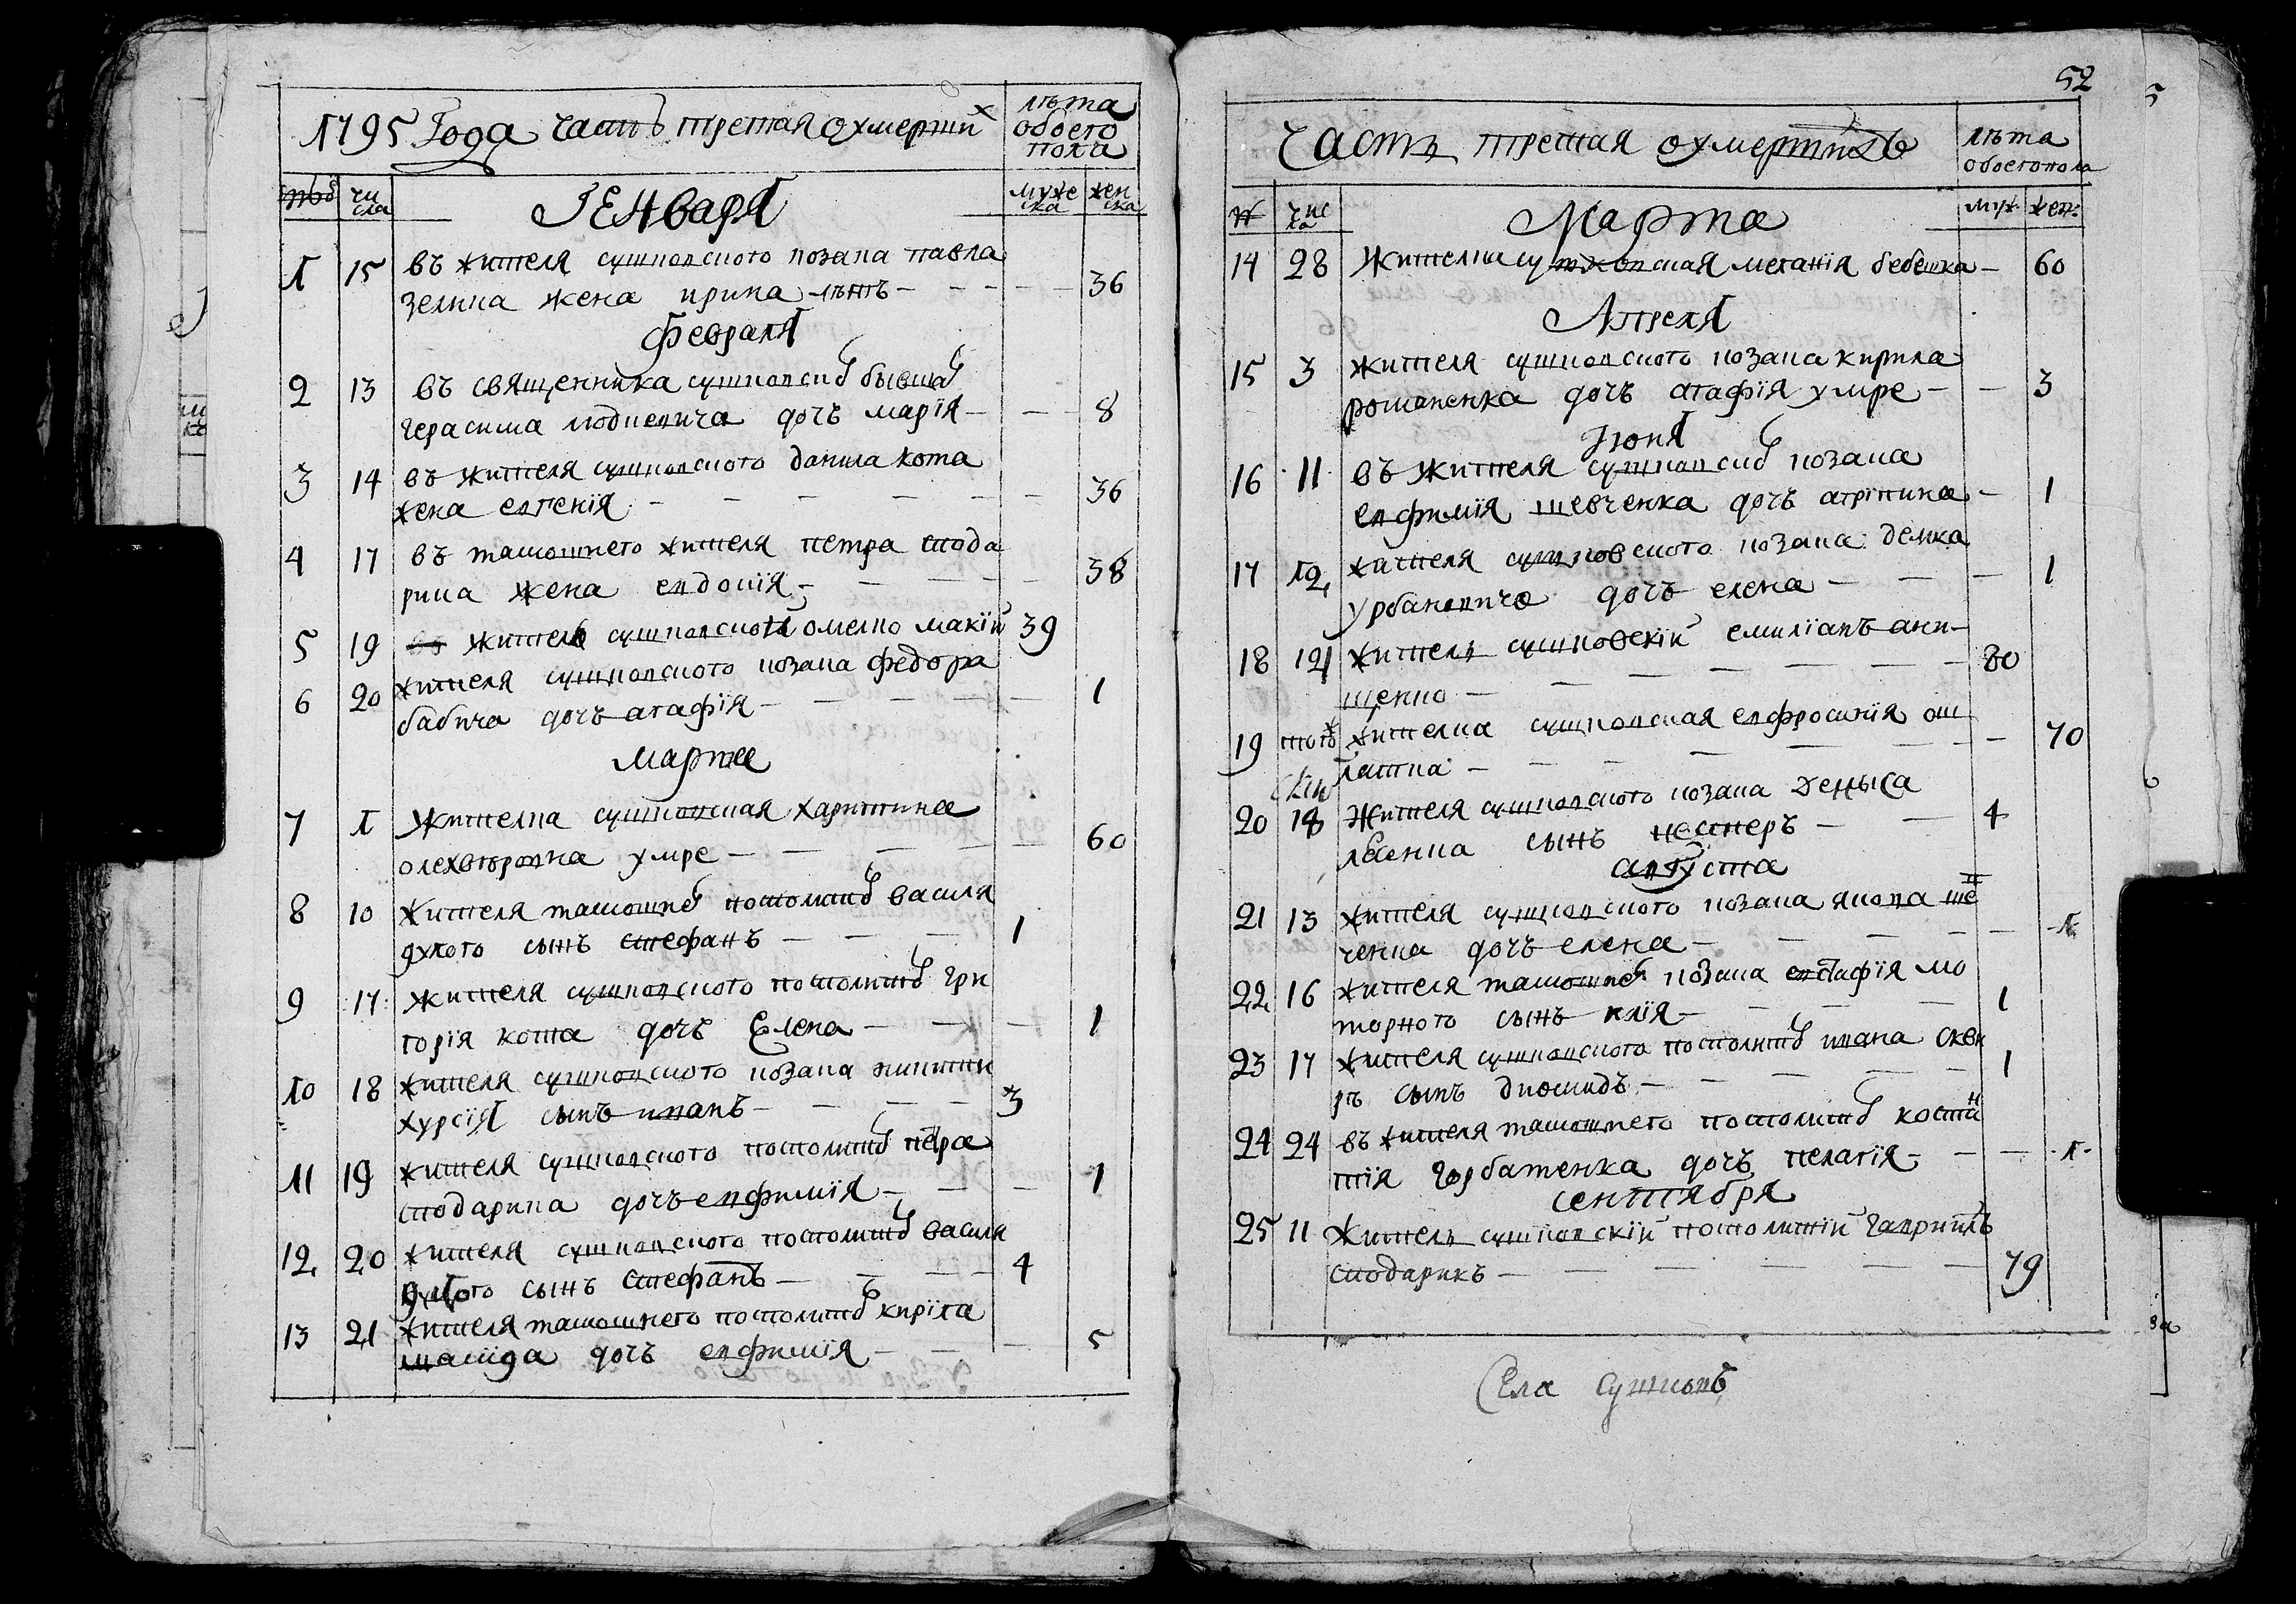 1795 Года часть третая оумерших
лѣта
обоего
пола
чи
сла
Генваря
муже
ска
жен
ска
1 15 въ жителя сушковского козака павла
зелика жена ирина лѣтъ 36
Февраля
2 13 въ священника сушковскиб бывшаб
герасима дочь марїя 8
3 14 въ жителя сушковского данила кота
жена евгенїя 36
4 17 въ тамошнего жителя петра спода
рика жена евдокїя 38
5 19 житель сушковского омелко макїй 39
6 20 жителя сушковского козака федора
бабича дочь агафїя 1
Марта
7 1 Жителка сушковская харитина
олехвѣровна умре 60
8 10 жителя тамошнеб посполитоб василя
духого сынъ стефанъ 1
9 17 жителя сушковского посполитоб гри
горїя кота дочь Елена 1
10 18 жителя сушковского козака никити
хурсїя сынъ иванъ 3
11 19 жителя сушковского посполитоб петра
сподарика дочь евфимїя 1
12 20 жителя сушковского посполитоб василя
духого сынъ стефанъ 4
13 21 жителя тамошнего посполитоб кирїла
дочь евфимїя 5
52
Часть третая оумершихъ
лѣта
обоегопола
№ чис
ла
Марта
муж. жен:
14 28 Жителка сушковская меланїя бебешка 60
Апреля
15 3 жителя сушковского козака кирила
романенка дочь агафїя умре 3
Іюня
16 11 въ жителя сушковскиб козака
евфимїя шевченка дочь агрїпина 1
17 12 жителя сушковского козака демка
урбановича дочь елена 1
18 121 житель сушковскїй емилїанъ ани
щенко 80
19 тогож жителка сушковская евфросинїя ош
латка 70
20 18 Жителя сушковского козака Деныса
сынъ несперъ 4
августа
21 13 жителя сушковского козака якова шев
ченка дочь елена 1
22 16 жителя тамошнеб козака евстафїя мо
торного сынъ илїя 1
23 17 жителя сушковского посполитоб ивана скви
рѣ сынъ диомидъ 1
24 24 въ жителя тамошнего посполитоб костан
тїя горбатенка дочь пелагїя 1
сентября
25 11 житель сушковскїй посполитїй гаврїилъ
сподарикъ 79
Села Сушковб